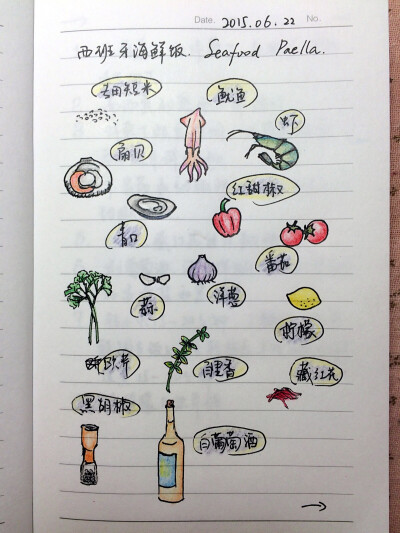 Date. 2015.06.22 No.
西班牙海鲜饭. Seafood Paella.
短米
鱿鱼
虾
扇贝
红甜椒
青口
番茄
蒜
洋葱
柠檬
欧芹
百里香
藏红花
黑胡椒
白葡萄酒
→